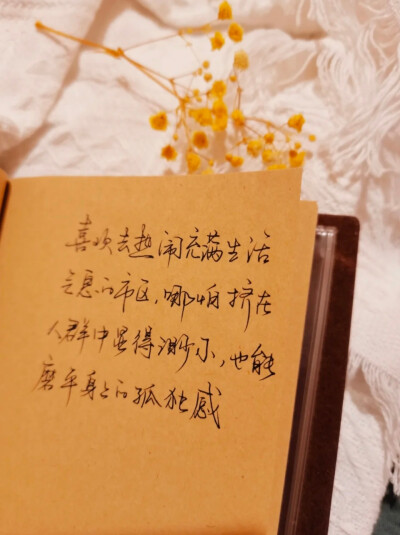 喜欢去热闹充满生活
气息的市区，哪怕挤在
人群中显得渺小，也能
磨平身上的孤独感